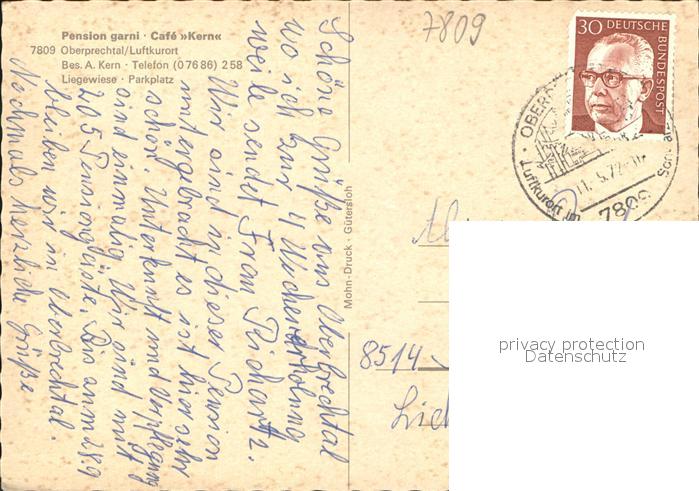 Pension garni · Café »Kern«
7809 Oberprechtal/Luftkurort
Bes. A. Kern · Telefon (07686) 258
Liegewiese · Parkplatz
Schöne Grüße aus Oberbrechtal
wo ich zur 4 Wochenerholung
weile sendet Frau Richartz.
Wir sind in dieser Pension
untergebracht es ist hier sehr
schön. Unterkunft und Verpflegung
sind einmalig. Wir sind mit
205 Pensiongäste. Bis zum 28.9
bleiben wir in Oberbrechtal.
Nochmals herzliche Grüße
Mohn-Druck · Gütersloh
7809
30 DEUTSCHE
BUNDESPOST
Luftkurort im
7809
8514
privacy protection
Datenschutz